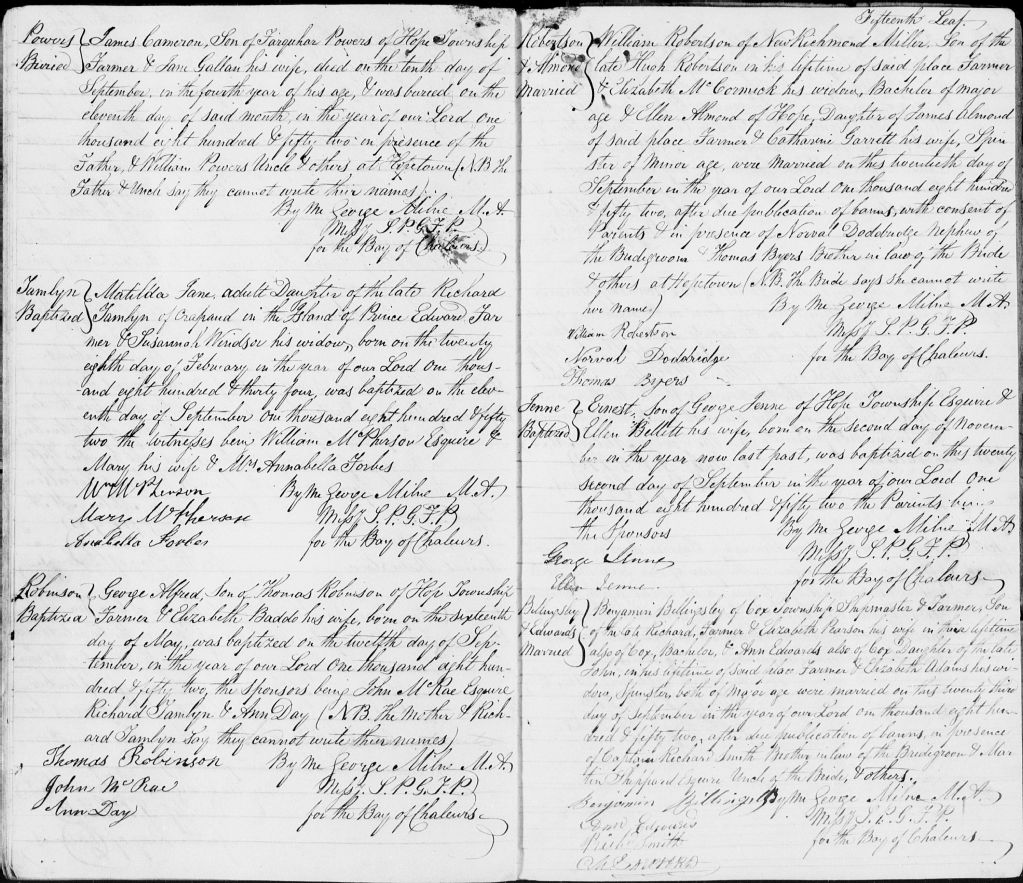 Powers } James Cameron, Son of Farquhar Powers of Hope Township
Buried } Farmer & Jane Gallan his wife, died on the tenth day of
September, in the fourth year of his age, & was buried on the
eleventh day of said month, in the year of our Lord One
thousand eight hundred & fifty two in presence of the
Father, & William Powers Uncle & others at Hopetown (N.B. The
Father & Uncle say they cannot write their names)
By Me George Milne M.A.
Missy S.P.G.F.P.
for the Bay of Chaleurs.
Tamlyn } Matilda Jane, adult Daughter of the late Richard
Baptized } Tamlyn of Crapaud in the Island of Prince Edward Far
mer & Susannah Windsor his widow, born on the twenty
eighth day of February in the year of our Lord One thous-
and eight hundred & thirty four, was baptized on the elev-
enth day of September One thousand eight hundred & fifty
two the witnesses bein William McPherson Esquire &
Mary his wife & Mrs Annabella Forbes
Wm McPherson By Me George Milne M.A.
Mary McPherson Missy S.P.G.F.P.
Anabella Forbes for the Bay of Chaleurs.
Robinson } George Alfred, Son of Thomas Robinson of Hope Township
Baptized } Farmer & Elizabeth Baddo his wife, born on the sixteenth
day of May, was baptized on the twelfth day of Sep-
tember, in the year of our Lord One thousand eight hun-
dred & fifty two, the Sponsors being John McRae Esquire
Richard Tamlyn & Ann Day (N.B. The Mother & Rich-
ard Tamlyn say they cannot write their names)
Thomas Robinson By Me George Milne M.A.
John McRae Missy S.P.G.F.P.
Ann Day for the Bay of Chaleurs.
Fifteenth Leaf.
Robertson } William Robertson of New Richmond Miller, Son of the
& Almond } late Hugh Robertson in his lifetime of said place Farmer
Married } & Elizabeth McCormick his widow, Bachelor of major
age & Ellen Almond of Hope, Daughter of James Almond
of said place Farmer & Catharine Garrett his wife, Spin
ster of Minor age, were Married on this twentieth day of
September in the year of our Lord One thousand eight hundred
& fifty two, after due publication of banns, with consent of
Parents & in presence of Norval Doddridge Nephew of
the Bridegroom & Thomas Byers Brother in law of the Bride
& others at Hopetown (N.B. The Bride says she cannot write
her name) By Me George Milne M.A.
William Robertson Missy S.P.G.F.P.
Norval Doddridge for the Bay of Chaleurs.
Thomas Byers
Jenne } Ernest, Son of George Jenne of Hope Township Esquire &
Baptized } Ellen Billett his wife, born on the second day of Novem-
ber in the year now last past, was baptized on this twenty
second day of September in the year of our Lord One
thousand eight hundred & fifty two the Parents being
the Sponsors By Me George Milne M.A.
George Jenne Missy S.P.G.F.P.
Ellen Jenne for the Bay of Chaleurs
Billingsley } Benjamin Billingsley of Cox Township Shipmaster & Farmer, Son
& Edwards } of the late Richard, Farmer & Elizabeth Pearson his wife in their lifetime
Married } also of Cox, Bachelor, & Ann Edwards also of Cox Daughter of the late
John, in his lifetime of said place Farmer & Elizabeth Adams his wi-
dow, Spinster, both of Major age were married on this twenty third
day of September in the year of our Lord one thousand eight hun-
dred & fifty two, after due publication of banns, in presence
of Captain Richard Smith Brother in law of the Bridegroom & Mar
tin Sheppard Esquire Uncle of the Bride, & others.
Benjamin Billingsley By Me George Milne M.A.
Ann Edwards Missy S.P.G.F.P.
Smith for the Bay of Chaleurs